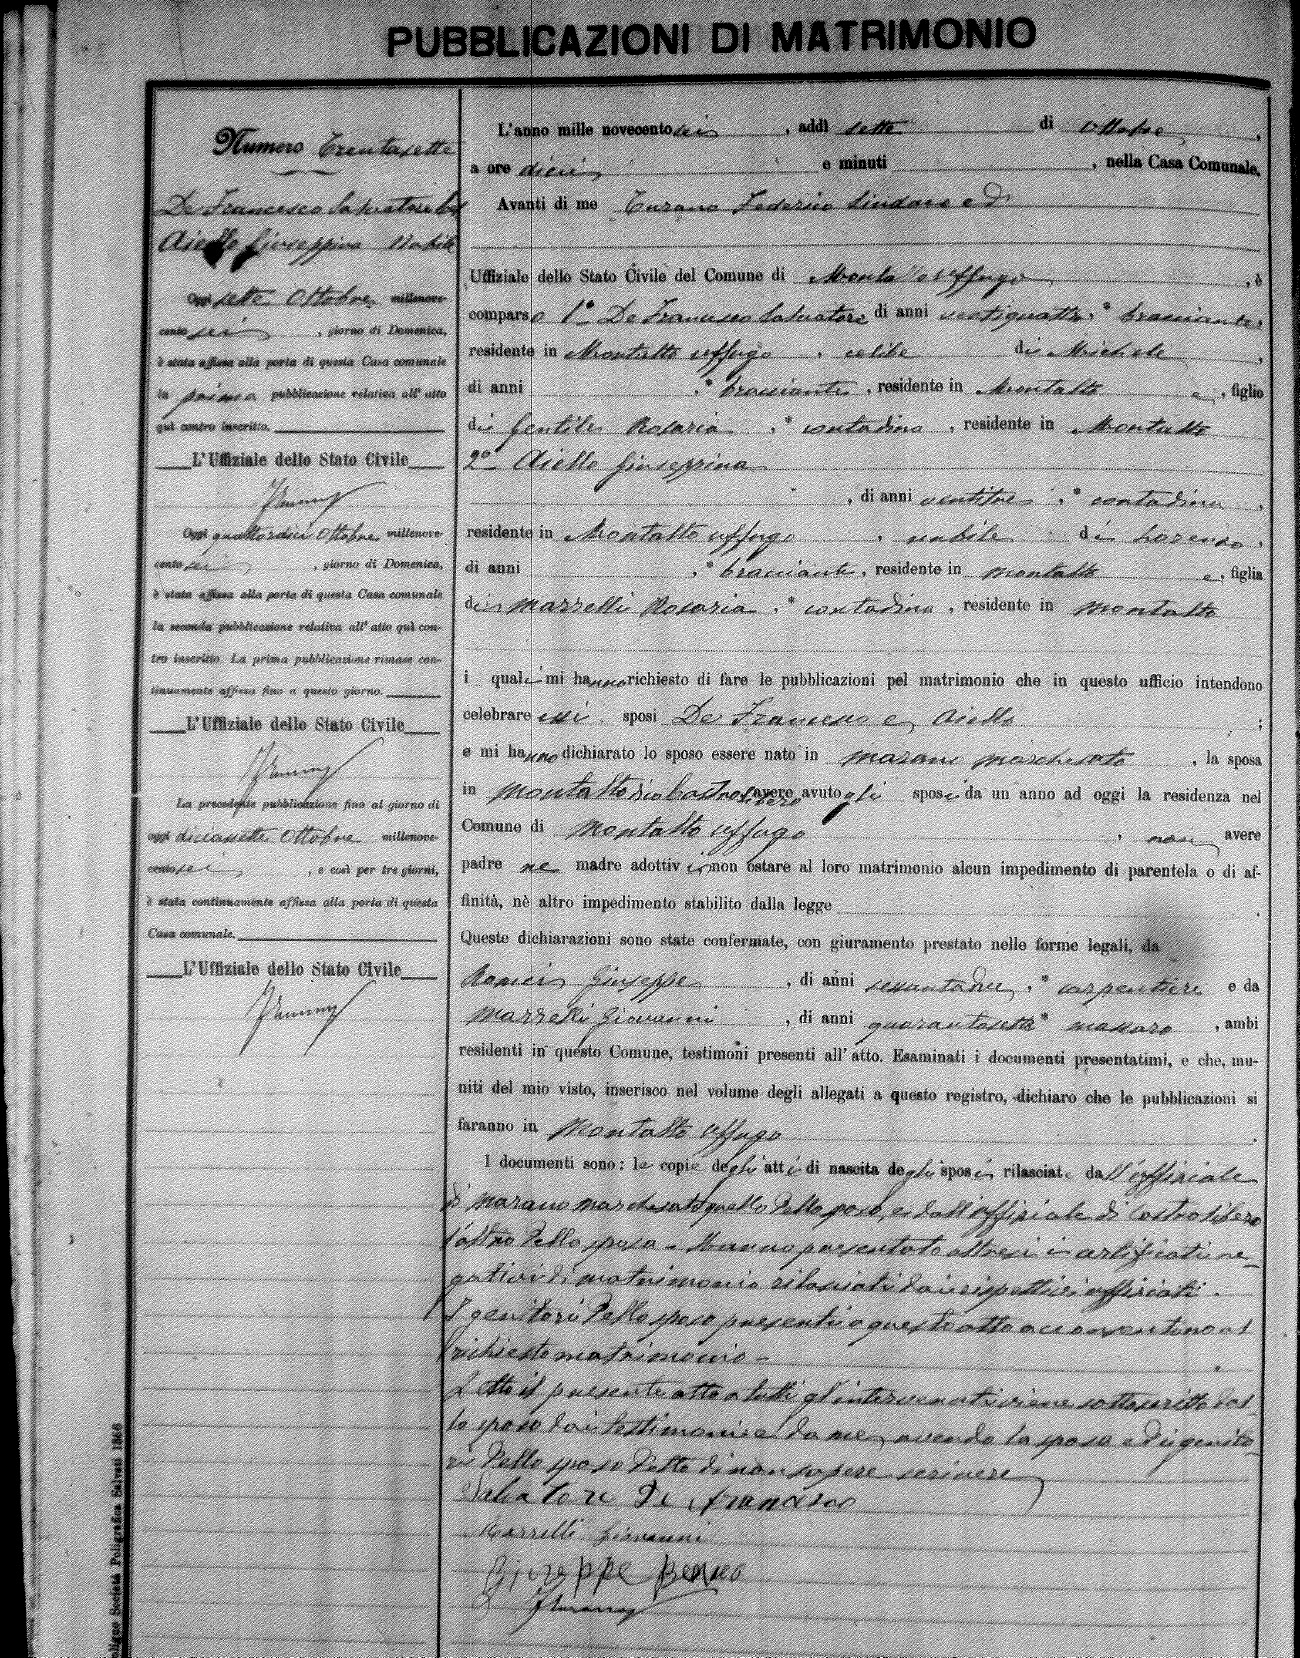 PUBBLICAZIONI DI MATRIMONIO
Numero Trentasette
De Francesco Salvatore
Aiello Giuseppina Nubile
Oggi sette Ottobre millenove-
cento sei , giorno di Domenica,
è stata affissa alla porta di questa Casa comunale
la prima pubblicazione relativa all' atto
quì contro inscritto.
L'Uffiziale dello Stato Civile
Oggi quattordici Ottobre millenove-
cento sei , giorno di Domenica,
è stata affissa alla porta di questa Casa comunale
la seconda pubblicazione relativa all' atto quì con-
tro inscritto. La prima pubblicazione rimase con-
tinuamente affissa fino a questo giorno.
L'Uffiziale dello Stato Civile
La precedente pubblicazione fino al giorno di
oggi diciasette Ottobre millenove-
cento sei , e così per tre giorni,
è stata continuamente affissa alla porta di questa
Casa comunale.
L'Uffiziale dello Stato Civile
L'anno mille novecento sei , addì sette di Ottobre ,
a ore dieci , e minuti , nella Casa Comunale.
Avanti di me Turano Federico Sindaco ed
Uffiziale dello Stato Civile del Comune di Montalto uffugo , è
comparso 1° De Francesco Salvatore di anni ventiquattro , * bracciante ,
residente in Montalto uffugo , celibe di Michele ,
di anni , * bracciante , residente in Montalto e , figlio
di Gentile Rosaria , * contadina , residente in Montalto
2° Aiello Giuseppina
, di anni ventitre , * contadina ,
residente in Montalto uffugo , nubile di Lorenzo ,
di anni , * bracciante , residente in Montalto e , figlia
di Marrelli Rosaria , * contadina , residente in Montalto
i quali mi hanno richiesto di fare le pubblicazioni pel matrimonio che in questo ufficio intendono
celebrare essi sposi De Francesco e Aiello ;
e mi hanno dichiarato lo sposo essere nato in Marano Marchesato , la sposa
in Castrolibero avere avuto gli sposi da un anno ad oggi la residenza nel
Comune di Montalto Uffugo , non avere
padre ne madre adottivi, non ostare al loro matrimonio alcun impedimento di parentela o di af-
finità, nè altro impedimento stabilito dalla legge .
Queste dichiarazioni sono state confermate, con giuramento prestato nelle forme legali, da
Giuseppe , di anni sessantadue , * carpentiere e da
Marrelli Giovanni , di anni quarantasette * massaro , ambi
residenti in questo Comune, testimoni presenti all' atto. Esaminati i documenti presentatimi, e che, mu-
niti del mio visto, inserisco nel volume degli allegati a questo registro, dichiaro che le pubblicazioni si
faranno in Montalto Uffugo .
I documenti sono: le copie degli atti di nascita degli sposi rilasciate dall'uffiziale
di Marano Marchesato quello dello sposo, e dall'uffiziale di Castrolibero
l'altro della sposa. Hanno presentato altresì i certificati ne-
gativi di matrimonio rilasciati dai rispettivi uffiziali.
I genitori dello sposo presenti a questo atto acconsentono al
richiesto matrimonio -
Letto il presente atto a tutti gl'intervenuti viene sottoscritto dal-
lo sposo dai testimoni e da me, avendo la sposa ed i genito-
ri dello sposo detto di non sapere scrivere
Salvatore De Francesco
Marrelli Giovanni
Giuseppe
Società Poligrafica Salvati 1866